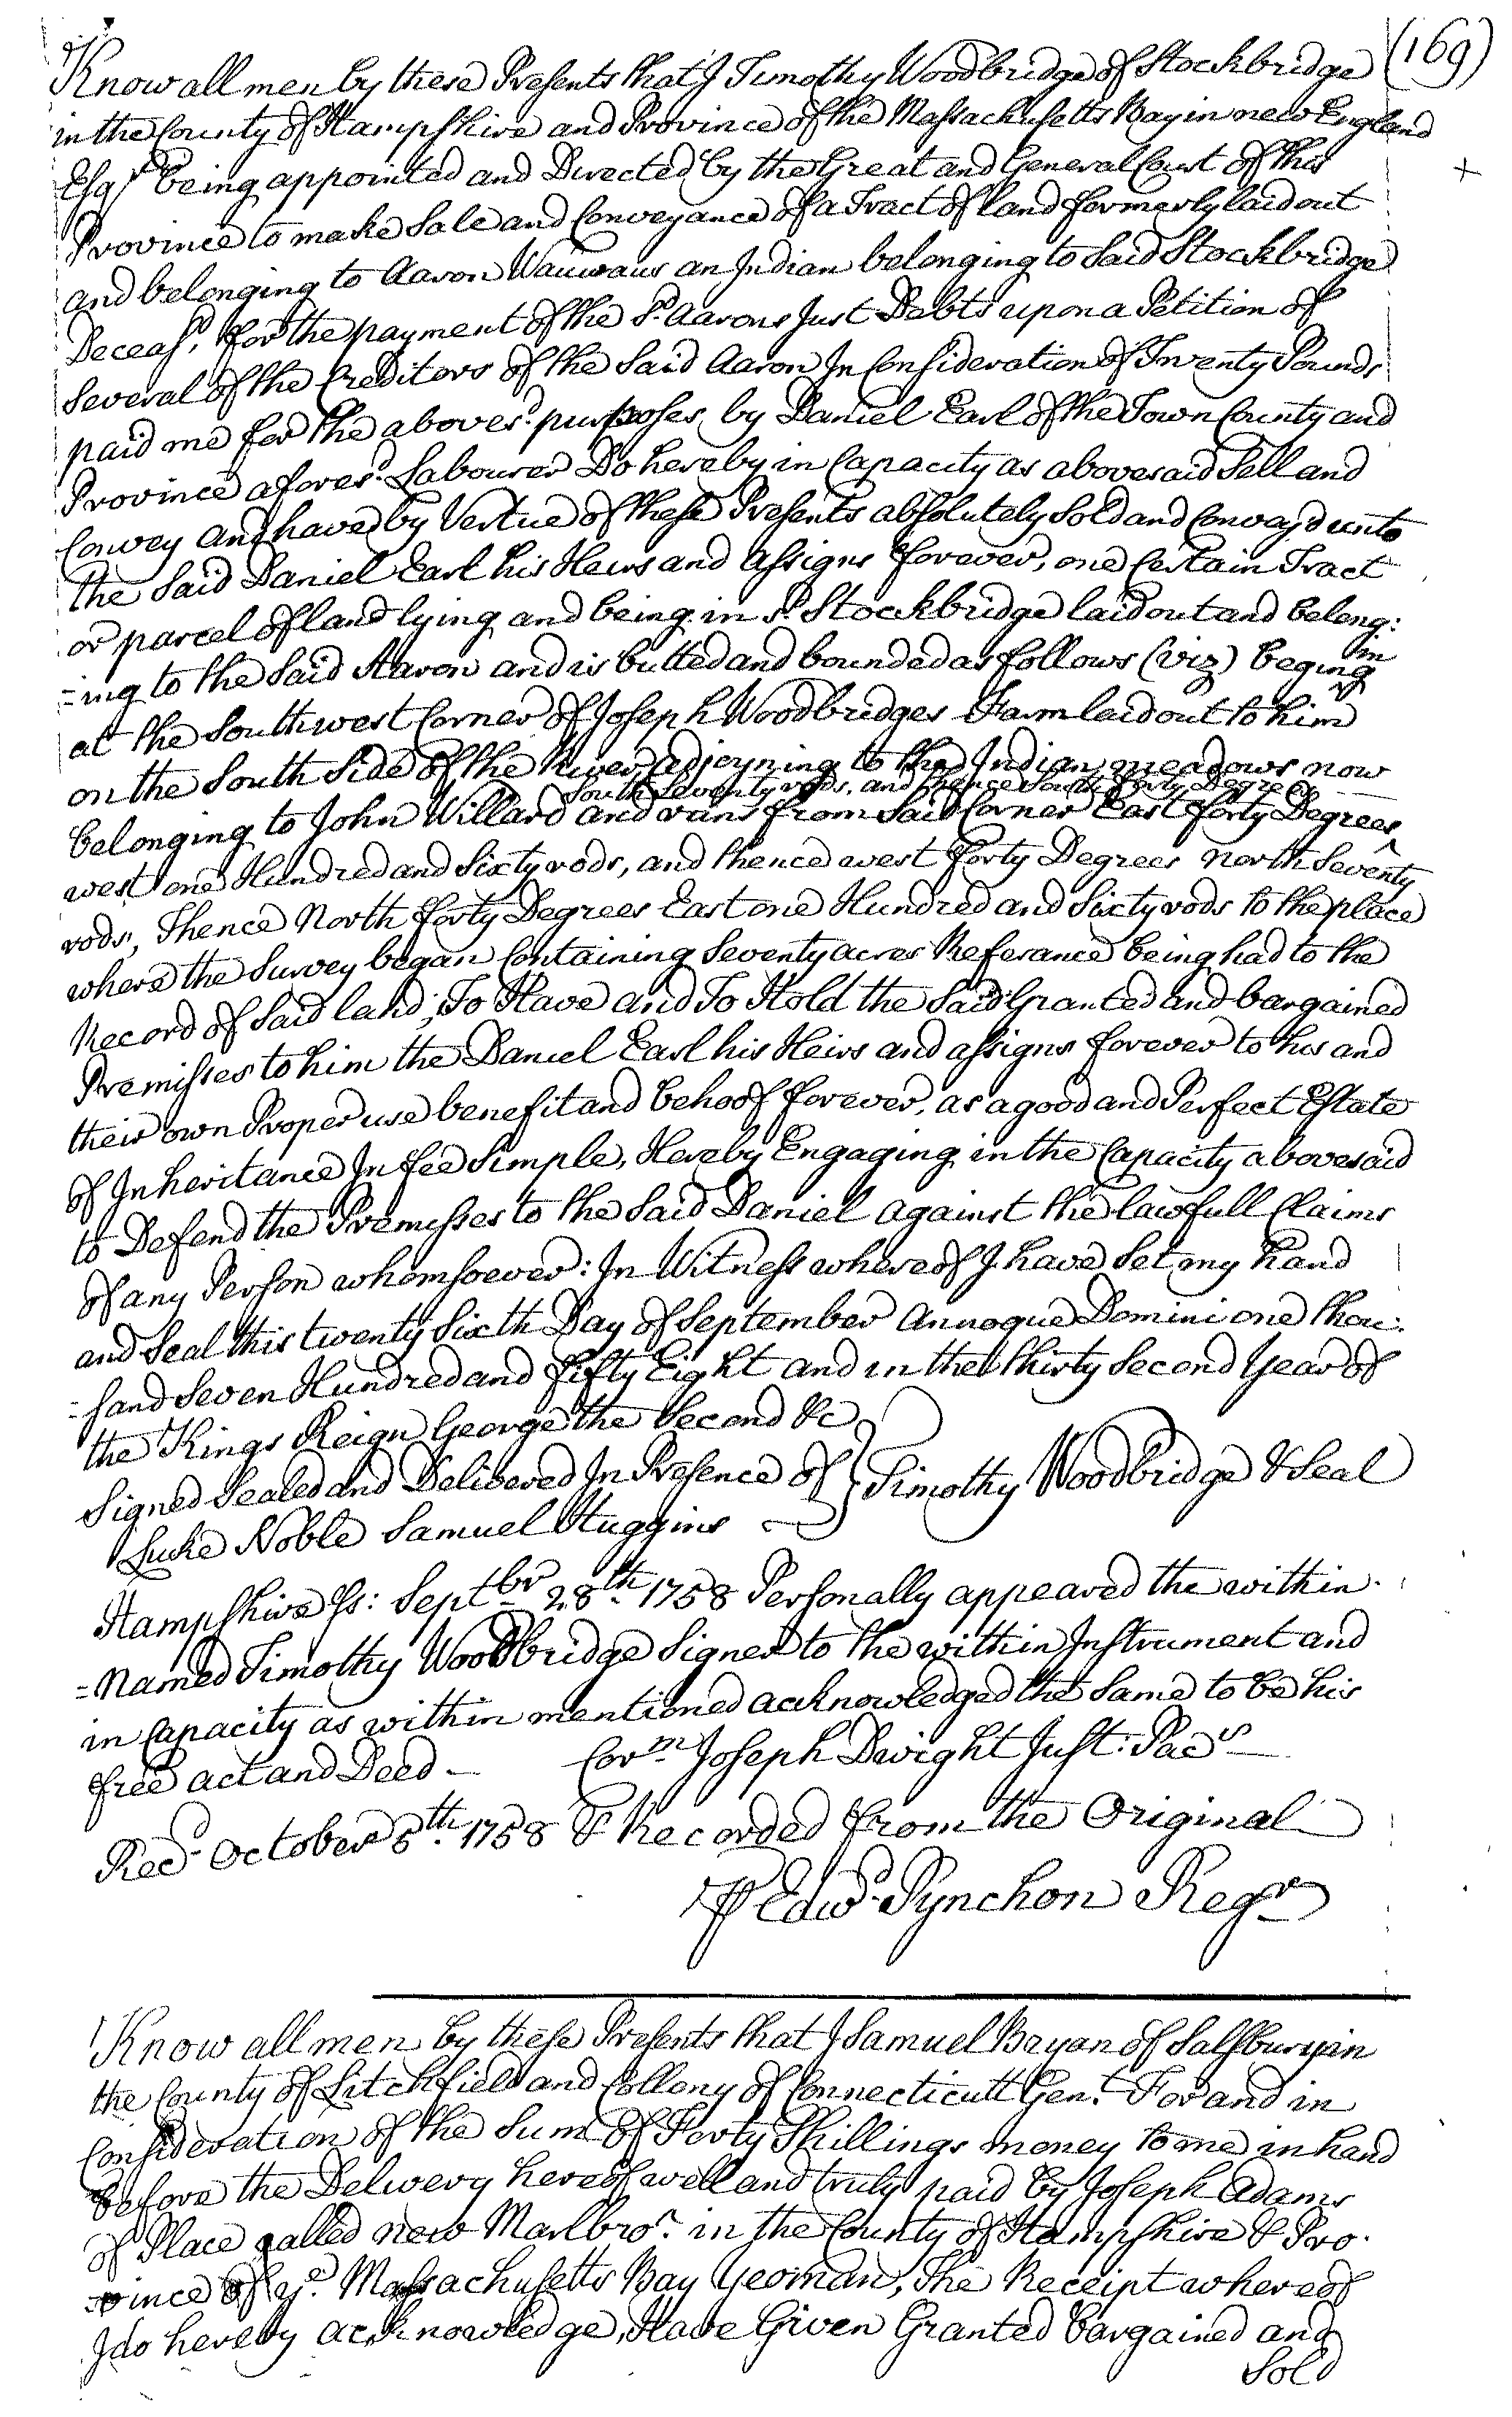 (169)
Know all men by these Presents that I Timothy Woodbridge of Stockbridge
in the County of Hampshire and Province of the Massachusetts Bay in new England
Esqr. being appointed and Directed by the Great and General Court of this
Province to make Sale and Conveyance of a Tract of land formerly laid out
and belonging to Aaron Wauwaus an Indian belonging to Said Stockbridge
Deceasd. for the payment of the sd. Aarons Just Debts upon a Petition of
Several of the Creditors of the Said Aaron In Consideration of Twenty Pounds
paid me for the abovesd. purposes, by Daniel Earl of the Town County and
Province aforesd. Labourer Do hereby in Capacity as abovesaid Sell and
Convey and have by Vertue of these Presents absolutely Sold and Convey'd unto
the Said Daniel Earl his Heirs and Assigns forever, one Certain Tract
or parcel of land lying and being in sd. Stockbridge laid out and belong:
=ing to the Said Aaron and is butted and bounded as follows (viz) begining
at the Southwest Corner of Joseph Woodbridges Farm laid out to him
on the South Side of the River, adjoyning to the Indian meadows now
belonging to John Willard and runs from Said Corner East forty Degrees
South Seventy rods, and thence South forty Degrees
west one Hundred and Sixty rods, and thence west forty Degrees north Seventy
rods, Thence North forty Degrees East one Hundred and Sixty rods to the place
where the Survey began Containing Seventy acres Referance being had to the
Record of Said land; To Have and To Hold the Said Granted and bargained
Premisses to him the Daniel Earl his Heirs and assigns forever to his and
their own Proper use benefit and behoof forever, as a good and Perfect Estate
of Inheritance In fee Simple, Hereby Engaging in the Capacity abovesaid
to Defend the Premisses to the Said Daniel against the lawfull Claims
of any Person whomsoever: In Witness whereof I have Set my hand
and Seal this twenty Sixth Day of September Annoque Domini one thou:
=sand Seven Hundred and fifty Eight and in the thirty Second Year of
the Kings Reign George the Second &c
Signed Sealed and Delivered In Presence of } Timothy Woodbridge & Seal
Luke Noble Samuel Huggins
Hampshire ss: Septbr. 28th. 1758 Personally appeared the within
=Named Timothy Woodbridge Signer to the within Instrument and
in Capacity as within mentioned acknowledged the Same to be his
free act and Deed — Corm. Joseph Dwight Just: Pacs
Recd. October 5th. 1758 & Recorded from the Original
P Edwd. Pynchon Regr
Know all men by these Presents that I Samuel Bryan of Salsbury in
the County of Litchfield and Collony of Connecticutt Gent. For and in
Consideration of the Sum of Forty Shillings money to me in hand
before the Delivery hereof well and truly paid by Joseph Adams
of Place called new Marlbro'. in the County of Hampshire & Pro-
=vince of ye. Massachusetts Bay Yeoman, The Receipt whereof
I do hereby acknowledge, Have Given Granted bargained and
Sold